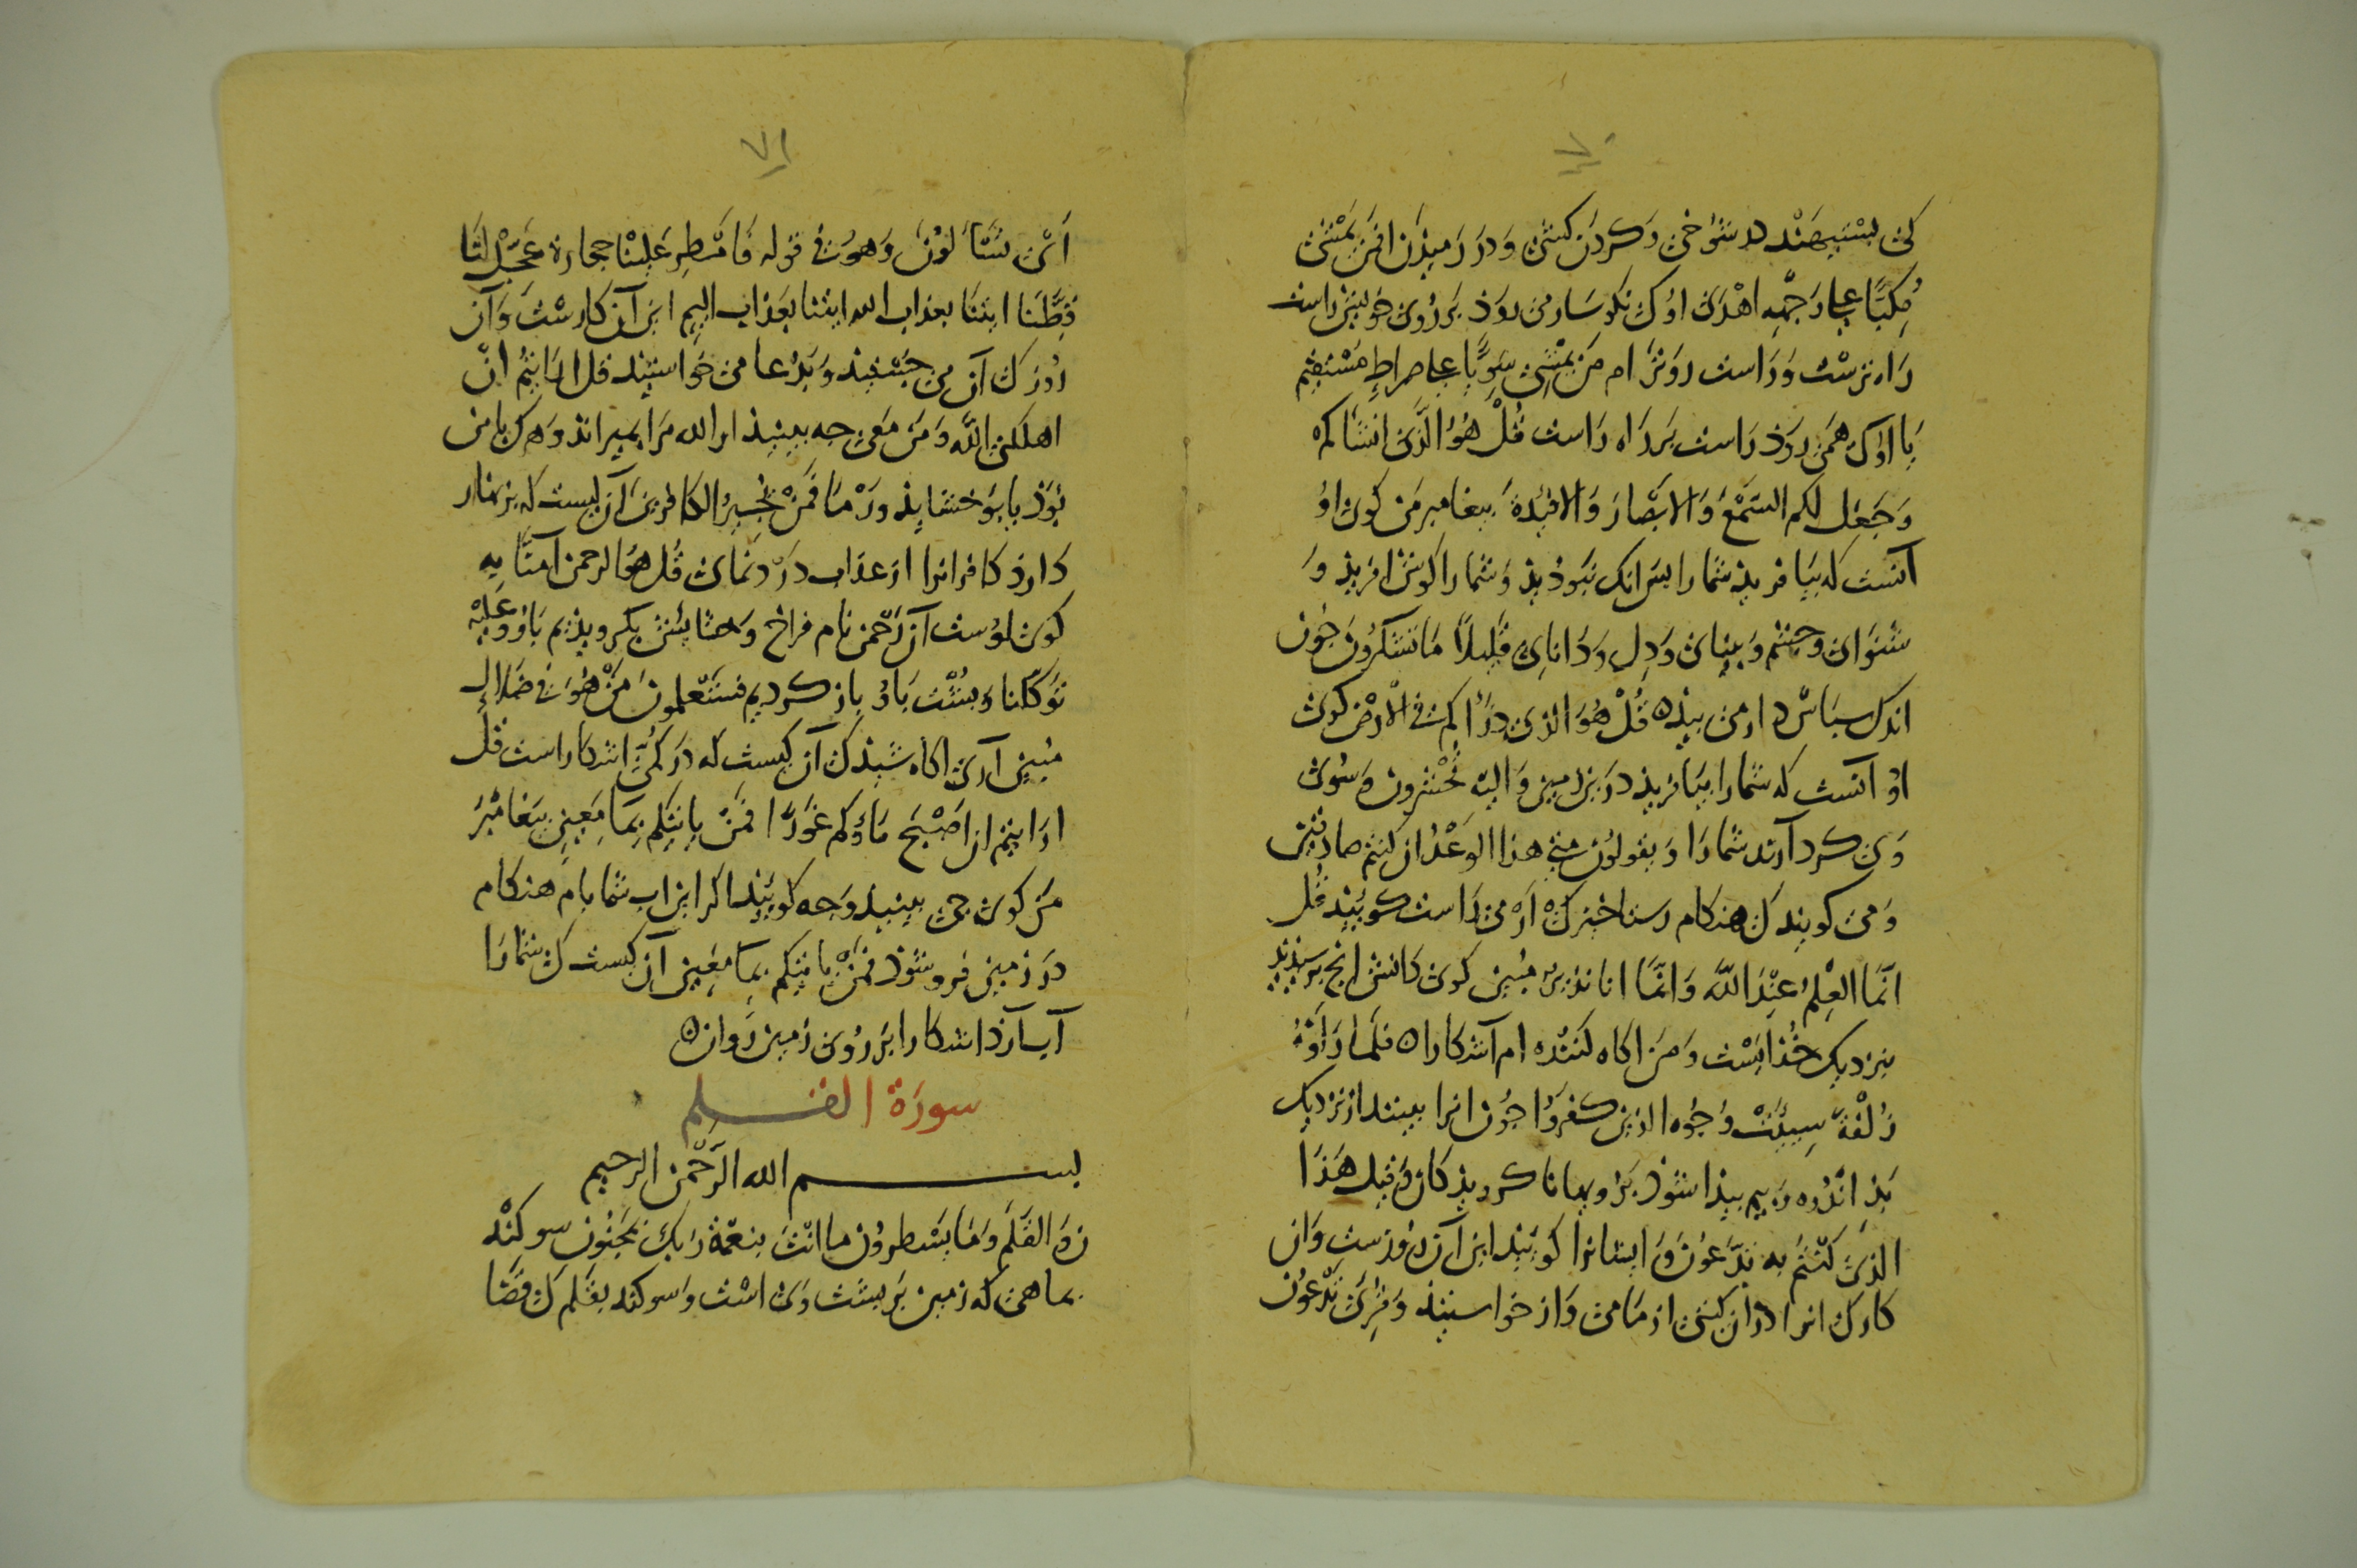 ۷۰
کی بستیهند در شوخی و کردن کشی و در رمیذن افمن یمشی
مکبا علی وجهه اهدی اوک نکوسار می روذ بر روی خویش راست
راه ترست و راست روتر ام من یمشی سویا علی صراط مستقیم
یا اوک همی روذ راست بر راه راست قل هو الذی انشاکم
وجعل لکم السمع والابصار والافئدة پیغامبر من کوی او
آنست که بیافریذ شما را پس انک نبوذیذ و شما را کوش افریذ و
شنوای و چشم و بینای و دل و دانای قلیلا ما تشکرون چون
اندک سپاس دار می بیذه قل هو الذی ذرأکم فی الارض کوی
او آنست که شما را بیافریذ در زمین والیه تحشرون و سوی
وی کرد آرند شما را ویقولون متی هذا الوعد ان کنتم صادقین
و می کویند ک هنکام رستاخیز ک ار می راست کویید قل
انما العلم عند الله وانما انا نذیر مبین کوی دانش انچ می پرسید
بنزدیک خذایست و من اکاه کننده ام آشکارا ه فلما راوه
زلفة سیئت وجوه الذین کفروا چون انرا بینند از نزدیک
بذ اندوه و بیم پیذا شوذ بر رویهای ناکرویذکان وقیل هذا
الذی کنتم به تدعون و ایشانرا کویند این آن روزست و ان
کار ک انرا در ان کیتی از ما می واز خواستیذ وقرئ تدعون
۷۱
ای تسألون وهو فی قوله فامطر علینا حجارة عجل لنا
قطنا ایتنا بعذاب الله ایتنا بعذاب الیم این آن کارست و آن
روز ک آن می جستیذ و بدعا می خواستیذ قل ارایتم ان
اهلکنی الله ومن معی چه بینیذ ار الله مرا بمیراند و هر ک با من
بوذ یا ببوخشایذ ورحمنا فمن یجیر الکافرین آن کیست که بزنهار
دارذ کافرانرا از عذاب دردنمای قل هو الرحمن آمنا به
کوی اوست آن رحمن نام فراخ وخشایش بکرویذیم باو وعلیه
توکلنا و پشت باو باز کردیم فستعلمون من هو فی ضلال
مبین آری اکاه شیذ ک آن کیست که در کمی اشکاراست قل
ارایتم ان اصبح ماؤکم غورا فمن یاتیکم بماء معین پیغامبر
من کوی چی بینیذ و چه کوییذ اکر این اب شما بام هنکام
در زمین فرو شوذ فمن یاتیکم بماء معین آن کیست ک شما را
آب آرذ اشکارا بر روی زمین روان ه
سورة القلم
بسم الله الرحمن الرحیم
ن والقلم وما یسطرون ما انت بنعمة ربک بمجنون سوکند
بماهی که زمین بر پشت وی است و سوکند بقلم ک قضا